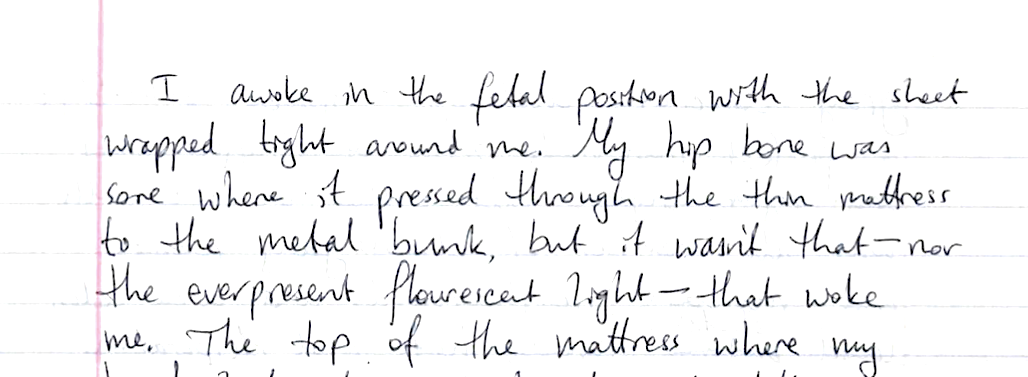 I awoke in the fetal position with the sheet
wrapped tight around me. My hip bone was
sore where it pressed through the thin mattress
to the metal bunk, but it wasn't that—nor
the everpresent flourescent light—that woke
me. The top of the mattress where my